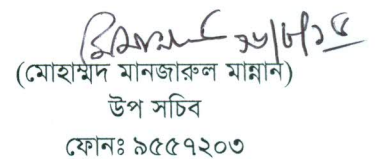 ২৮/৮/১৫
(মোহাম্মদ মানজারুল মান্নান)
উপ সচিব
ফোনঃ ৯৫৫৭২০৩